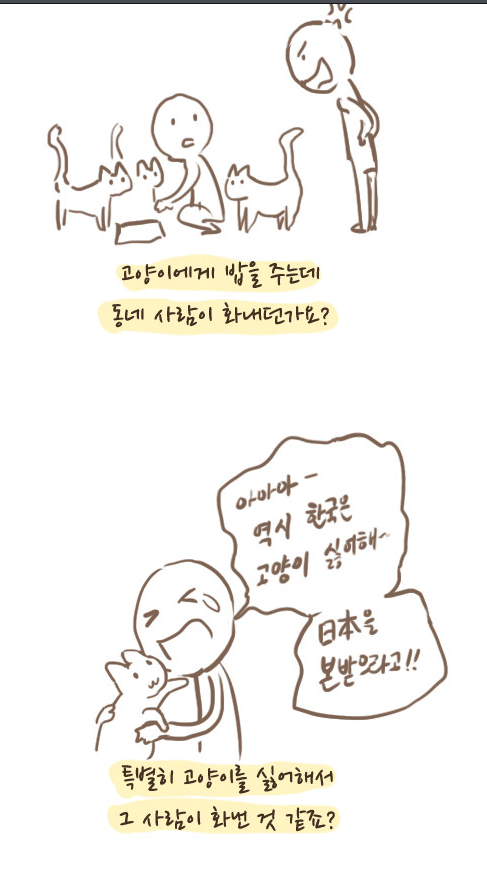 고양이에게 밥을 주는데
동네 사람이 화내던가요?
아아아-
역시 한국은
고양이 싫어해~
日本을
본받으라고!!
특별히 고양이를 싫어해서
그 사람이 화낸 것 같죠?